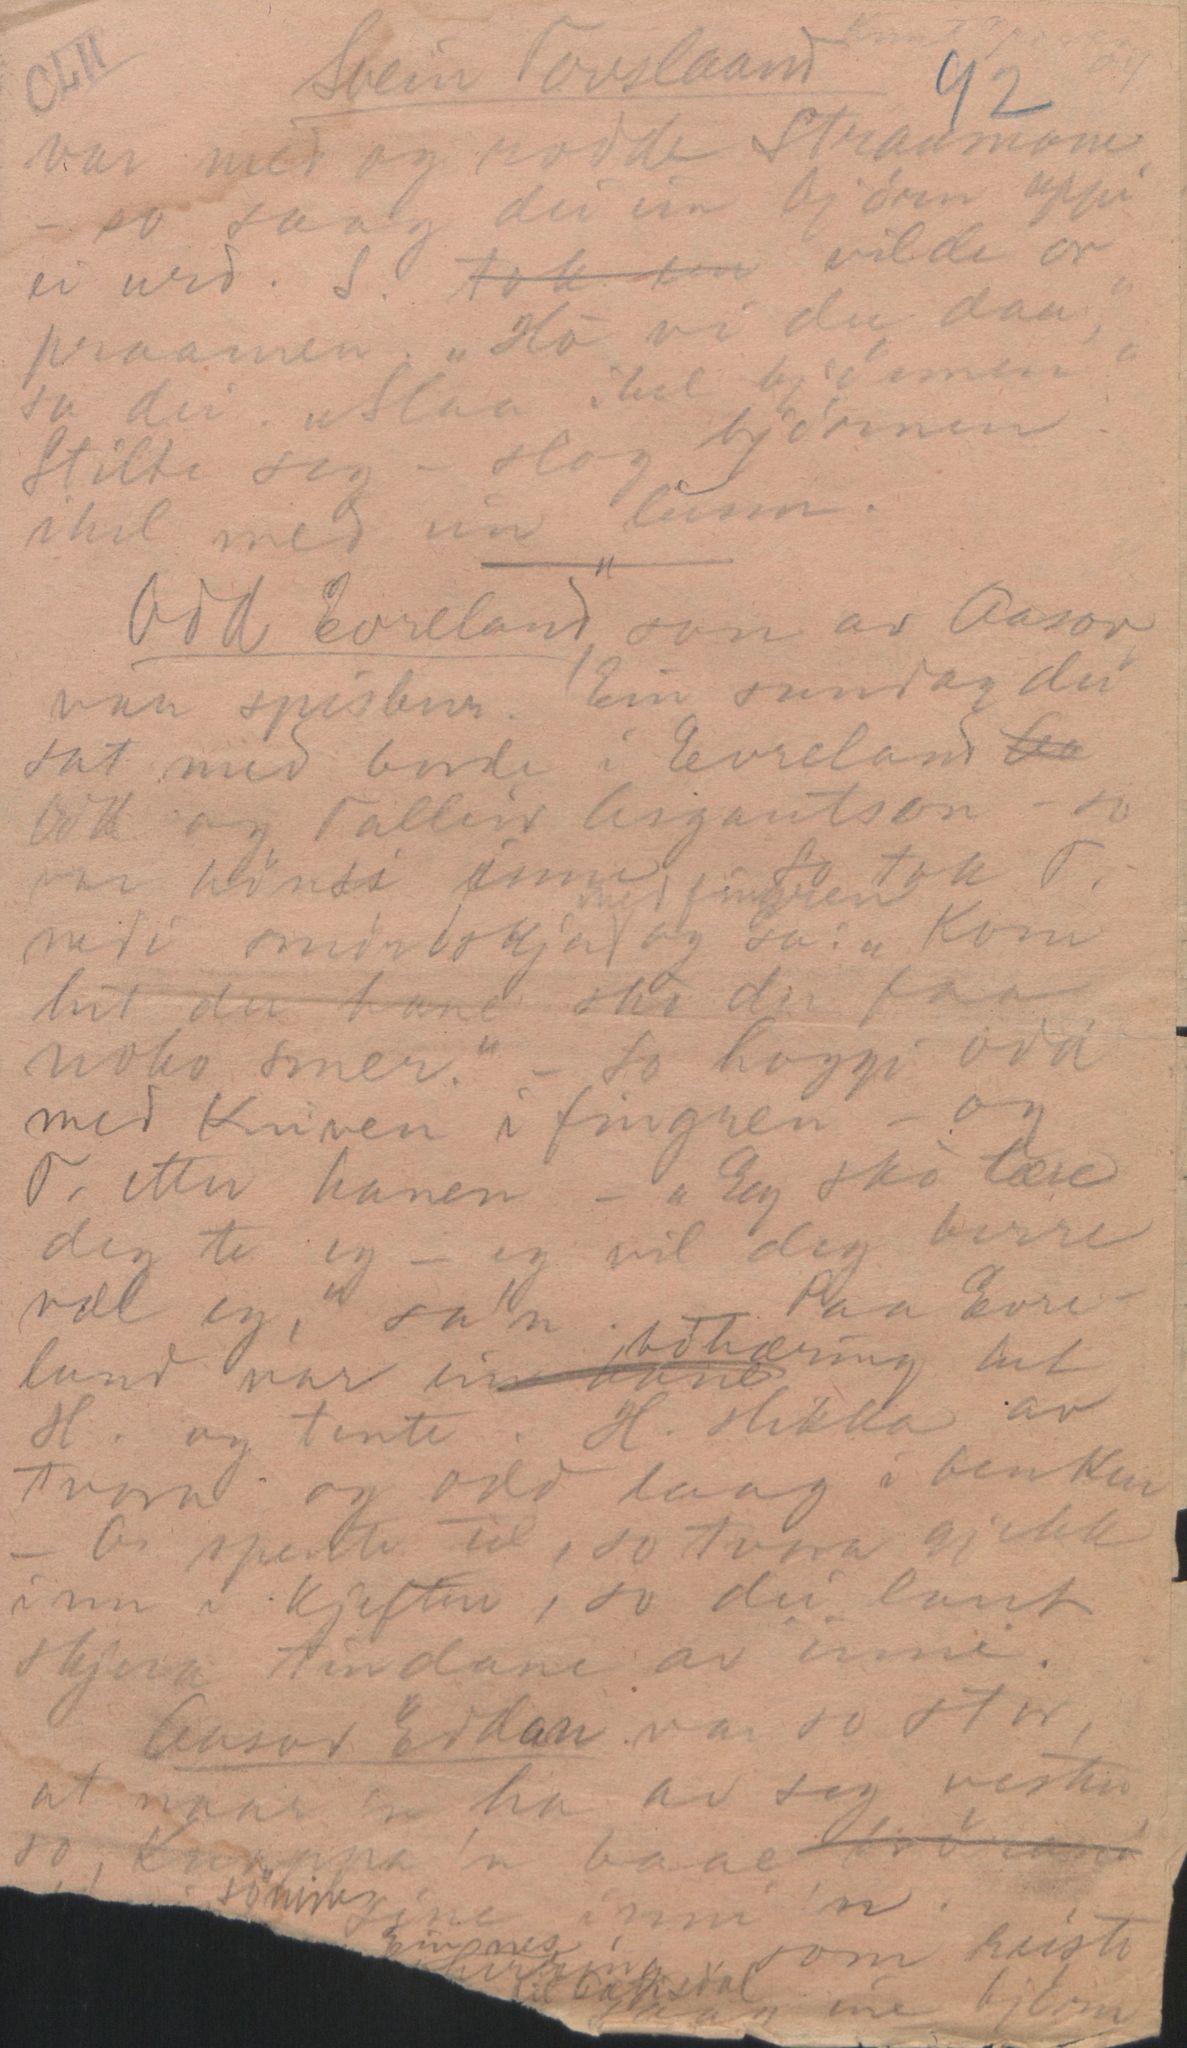 CLII
Svein Tovslaand 92
var med og rodde Straumane
- so saag dei ein bjørn uppi
ei urd. S. tok ein vilde or
praamen. „Hó vi du daa,"
sa dei. „Slaa ihel bjórnen"
Stilte seg - slog bjórnen
ihel med ein lurm.
Odd Evreland, son av Aasov,
var spisbur. Ein sundag dei
sat med borde i Evreland
Odd og Talleiv Asgautson - so
var hónsi inne. So tok T.
med fingren
nedi smórbskja og sa: „Kom
hit du hane sko du faa
noko smer." - So hoggi Odd
med kniven i fingren - og
T. etter hanen - „Eg sko lære
deg te eg - eg vil deg berre
væl eg," sa'n. Paa Evre-
land var ein hæring het
H. og tente. H. slikka av
tvora og Odd laag i benken
- O. spente til, so tvora gjekk
inn i kjeften, so dei laut
skjera tindane av inni.
Aasov Eddan var so stor,
at naar 'n ha av seg vesten,
so kneppa 'n baae
sónine sine inni 'n.
som reiste
saag eie bjórn